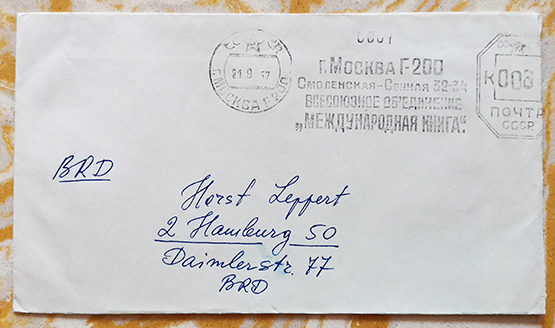 0001
21 9 67
Г. МОСКВА Г-200
Г. МОСКВА Г-200
СМОЛЕНСКАЯ-СЕННАЯ 32-34
ВСЕСОЮЗНОЕ ОБ'ЕДИНЕНИЕ
„МЕЖДУНАРОДНАЯ КНИГА".
К 003
ПОЧТА
СССР
BRD
Horst Leppert
2 Hamburg 50
Daimlerstr. 77
BRD